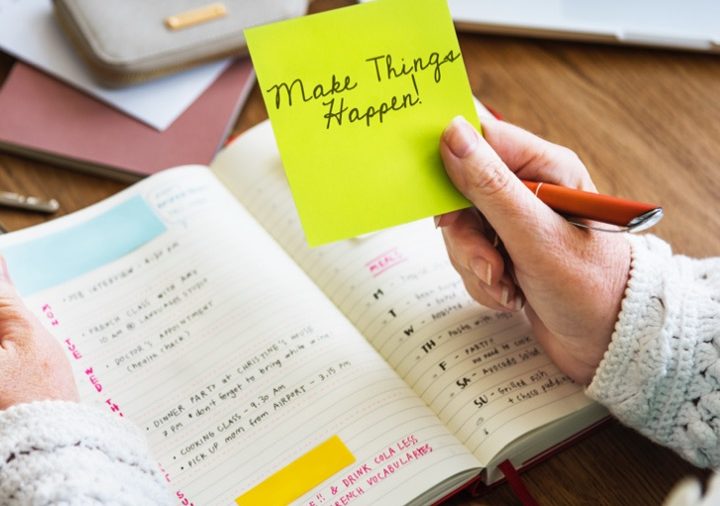 Make Things
Happen!
JOB INTERVIEW - 4.30 PM
FRENCH CLASS WITH AMY
10 AM @ LANGUAGE STUDIO
DOCTOR'S APPOINTMENT
(health check)
DINNER PARTY at CHRISTINE'S HOUSE
7 PM * don't forget to bring white wine
COOKING CLASS - 9.30 AM
PICK UP mom from AIRPORT - 3.15 PM
MON
TUE
WED
TH
S
!! & DRINK COLA LESS
FRENCH VOCABULARIES
MEALS
M
T
W
TH - Pasta with
F - PARTY!
no need to cook
SA - Avocado Salad
SU - Grilled fish
+ choco pudding